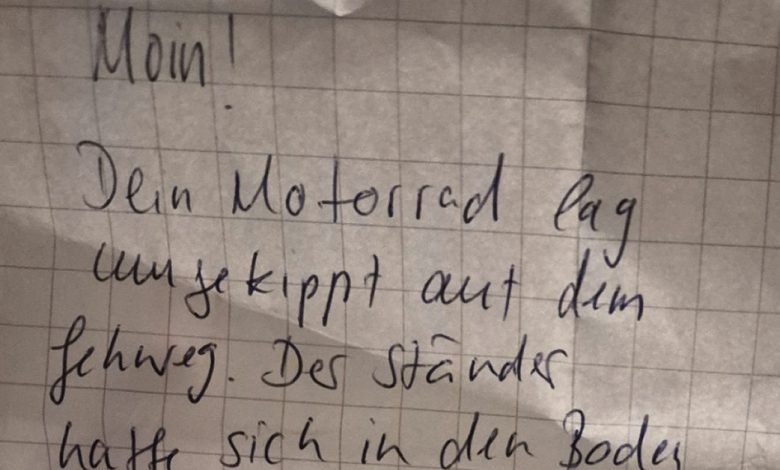 Moin!
Dein Motorrad lag
umgekippt auf dem
Gehweg. Der Ständer
hatte sich in den Boden